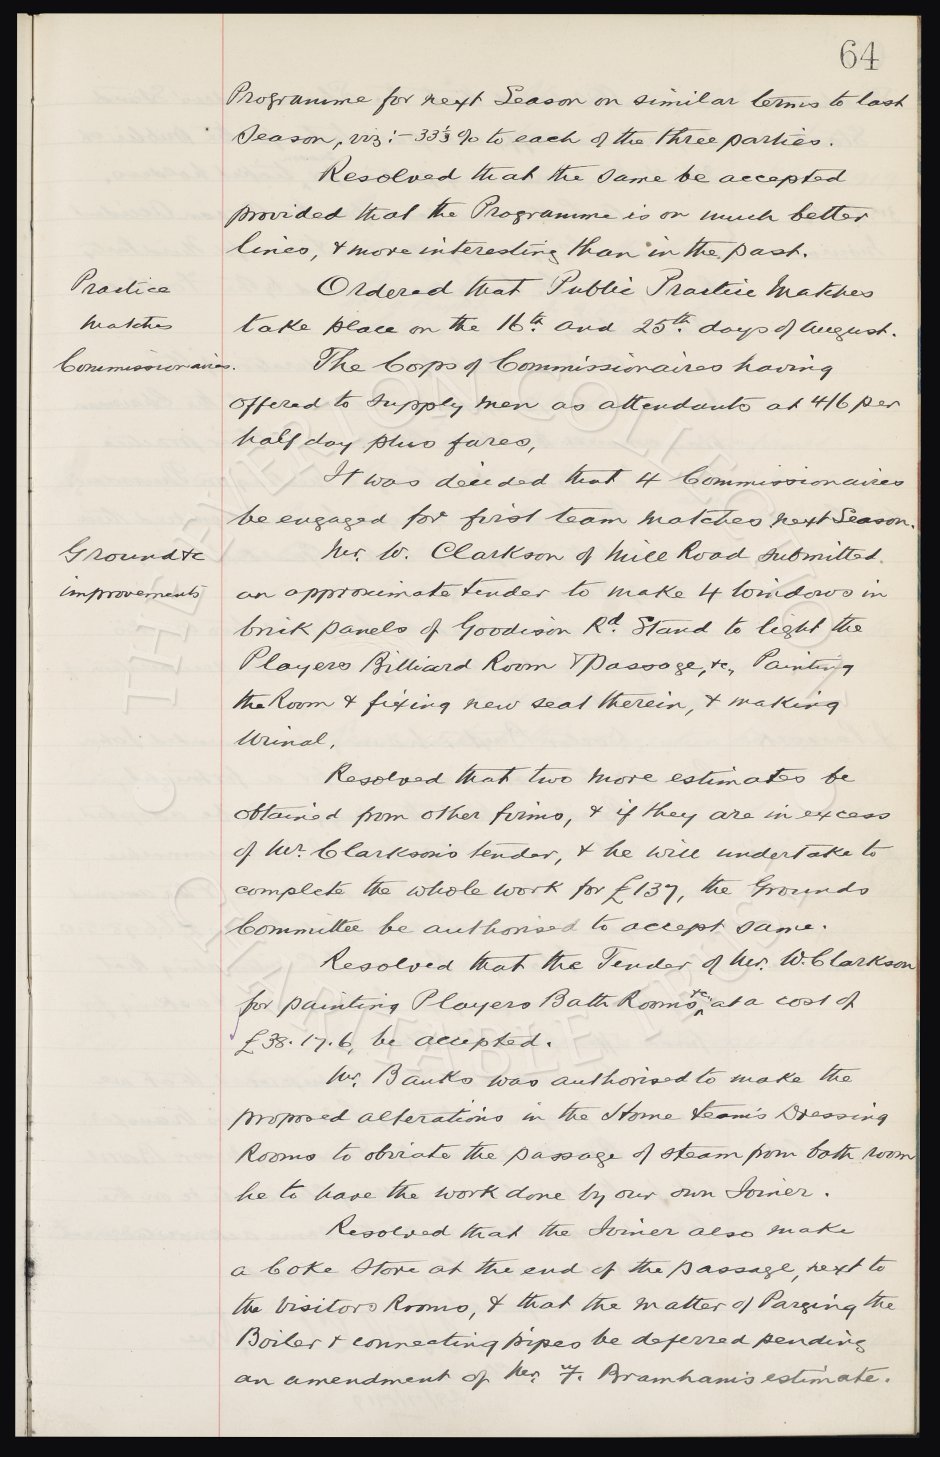 64
Programme for next Season on similar terms to last
Season, viz:- 33⅓ % to each of the three parties.
Resolved that the same be accepted
provided that the Programme is on much better
lines, & more interesting than in the past.
Practice
Matches
Ordered that Public Practice Matches
take place on the 16th. and 25th. days of August.
Commissionaires.
The Corps of Commissionaires having
offered to supply men as attendants at 4/6 per
half day plus fares,
It was decided that 4 Commissionaires
be engaged for first team matches next Season.
Ground &c
improvements
Mr. W. Clarkson of Mill Road submitted
an approximate tender to make 4 windows in
brick panels of Goodison Rd. Stand to light the
Players Billiard Room & passage, &c, Painting
the Room & fixing new seat therein, & making
Urinal.
Resolved that two more estimates be
obtained from other firms, & if they are in excess
of Mr. Clarkson's tender, & he will undertake to
complete the whole work for £137, the Grounds
Committee be authorised to accept same.
Resolved that the Tender of Mr. W. Clarkson
for painting Players Bath Rooms &c. at a cost of
£38.17.6, be accepted.
Mr. Banks was authorised to make the
proposed alterations in the Home team's Dressing
Rooms to obviate the passage of steam from bath room
he to have the work done by our own Joiner.
Resolved that the Joiner also make
a Coke Store at the end of the passage, next to
the Visitors Rooms, & that the matter of Parging the
Boiler & connecting pipes be deferred pending
an amendment of Mr. F. Bramham's estimate.
THE EVERTON COLLECTION
CHARITABLE TRUST